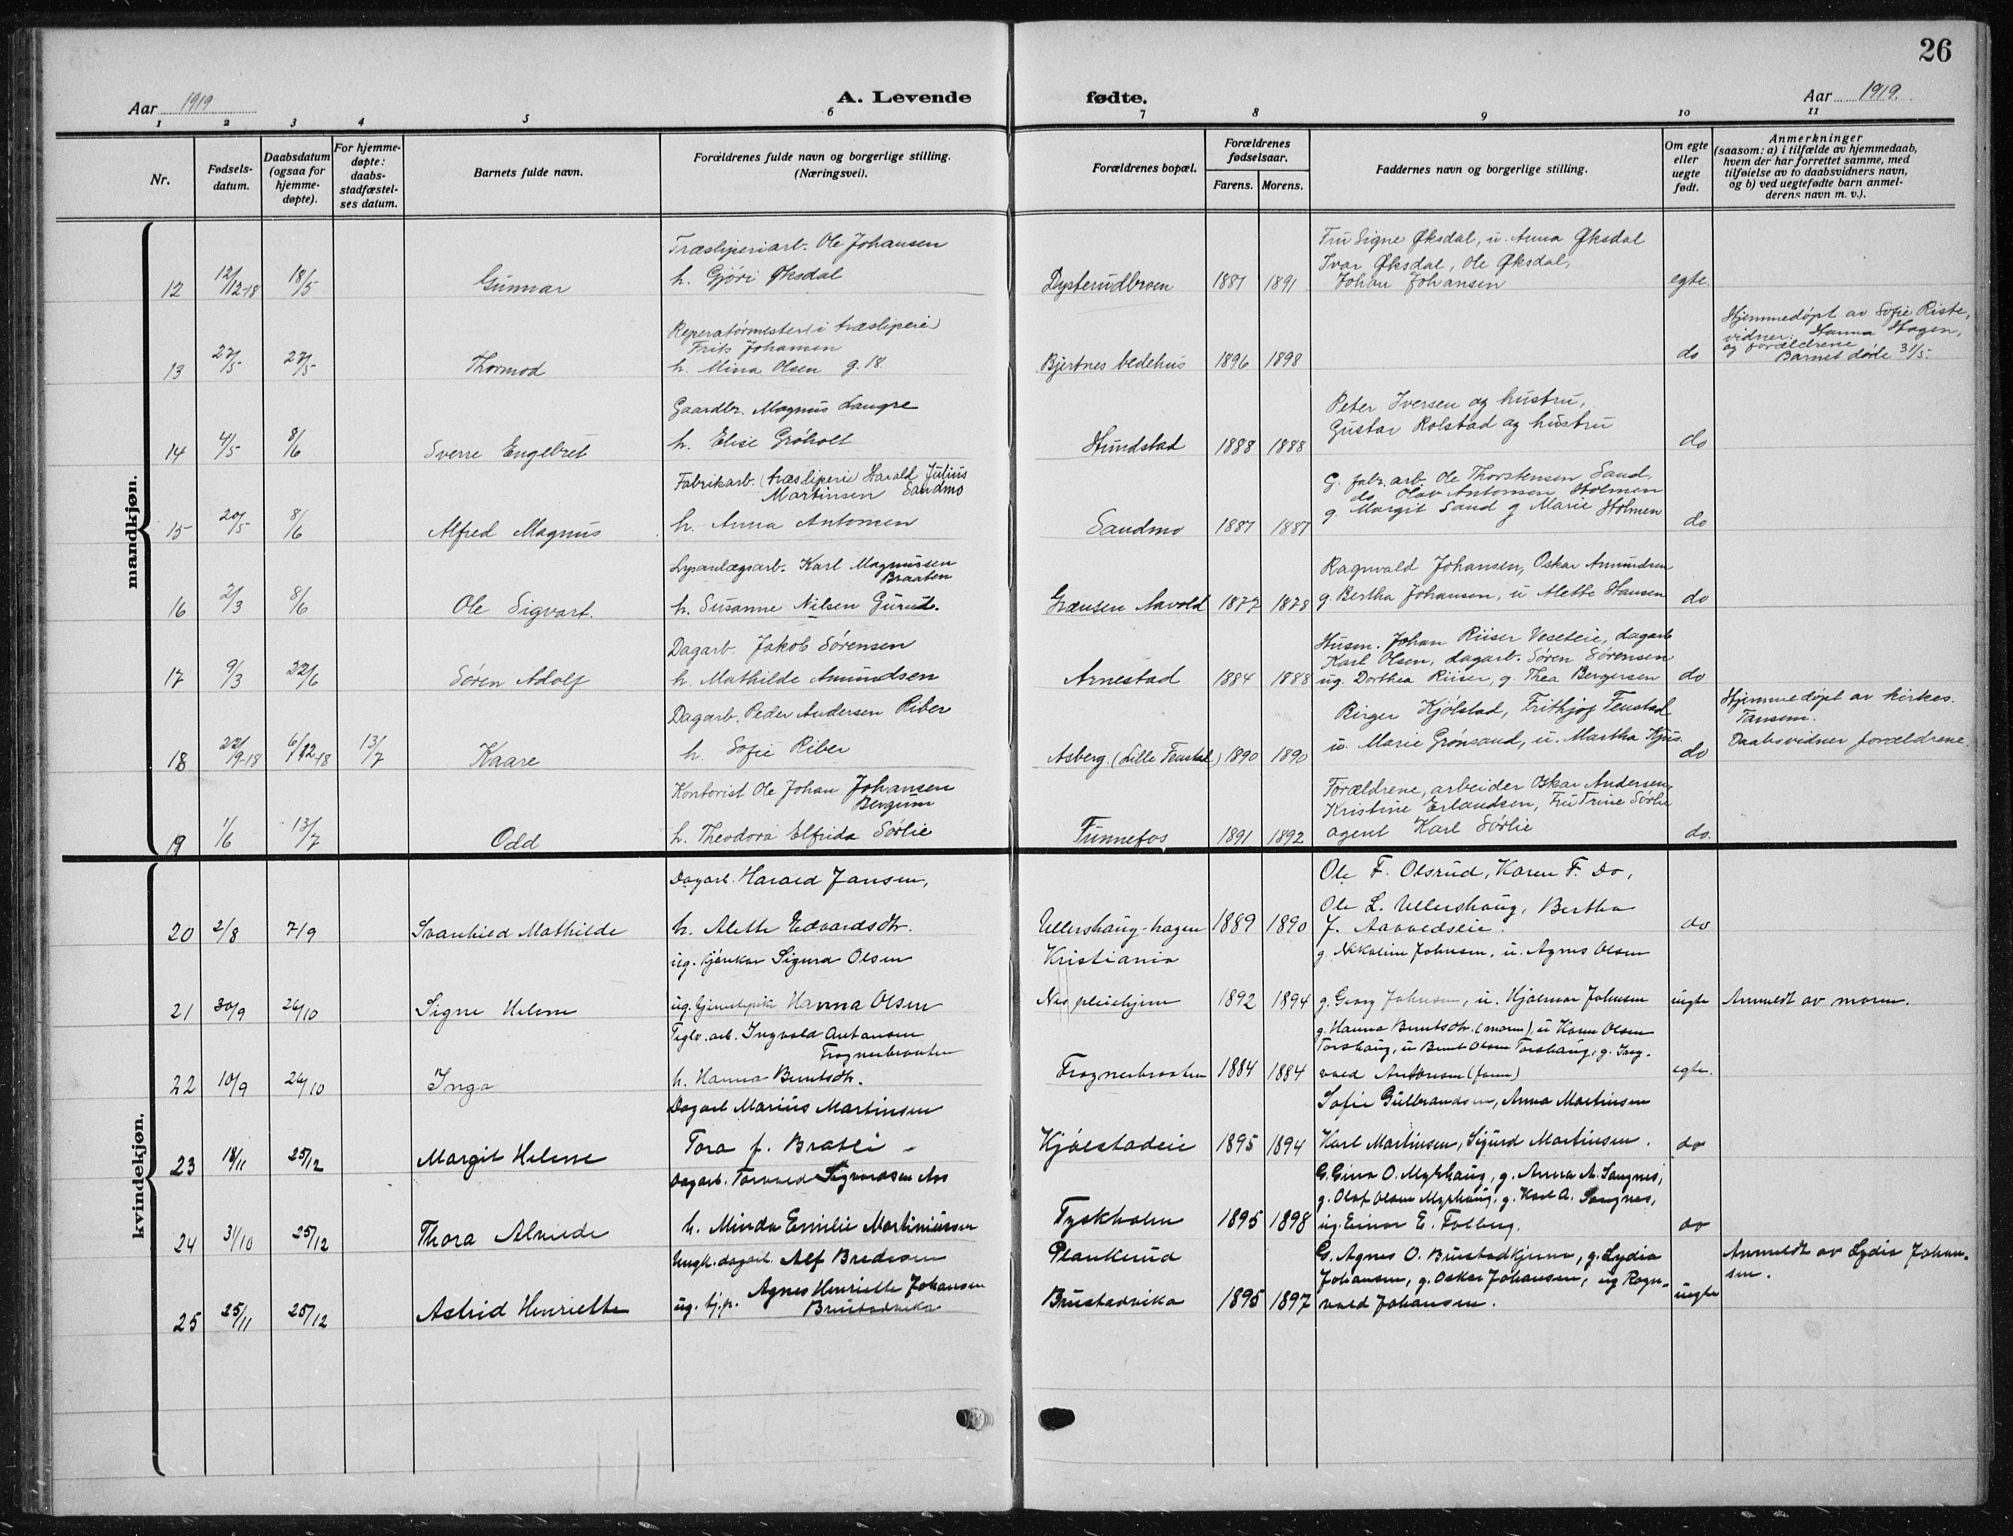 26
Aar 1919
A. Levende fødte.
Aar 1919.
1 2 3 4 5 6 7 8 9 10 11
Nr.
Fødsels-
datum.
Daabsdatum
(ogsaa for
hjemme-
døpte).
For hjemme-
døpte:
daabs-
stadfæstel-
ses datum.
Barnets fulde navn.
Forældrenes fulde navn og borgerlige stilling.
(Næringsvei).
Forældrenes bopæl.
Forældrenes
fødselsaar.
Farens. Morens.
Faddernes navn og borgerlige stilling.
Om egte
eller
uegte
født.
Anmerkninger
(saasom: a) i tilfælde av hjemmedaab,
hvem der har forrettet samme, med
tilføielse av to daabsvidners navn,
og b) ved uegtefødte barn anmel-
derens navn m. v.).
mandkjøn.
Træsliperiarb. Ole Johansen
Fru Signe Øksdal, u. Anna Øksdal
Ivar Øksdal, Ole Øksdal,
12 12/12-18 18/5 Gunnar h. Gjøri Øksdal Dysterudbroen 1887 1891 Johan Johansen egte.
Reperatørmester (i træsliperie)
Frits Johansen
Hjemmedøpt av Sofie Riste,
vidner: Hanna Hagen,
og forældrene
13 27/5 27/5 Thormod h. Mina Olsen g. 18. Bjertnes bedehus 1896 1898 do Barnet døde 31/5.
Gaardbr. Magnus Laugre
Peter Iversen og hustru,
14 4/5 8/6 Sverre Engebret h. Elise Grøholt Hundstad 1888 1888 Gustav Rolstad og hustru do
Fabrikarb. (træsliperie Harald Julius
Martinsen Sandmo
G. fabr. arb. Ole Thorstensen Sand,
do Olav Antonsen Holmen
15 20/5 8/6 Alfred Magnus h. Anna Antonsen Sandmo 1887 1887 g. Margit Sand g Marie Holmen do
Lysanlægsarb. Karl Magnussen
Braaten
Ragnvald Johansen, Oskar Amundsen
16 2/3 8/6 Ole Sigvart. h. Susanne Nilsen Gurud. Grænsen Aavold 1877 1878 g. Bertha Johansen, u Alette Hansen do
Dagarb. Jakob Sørensen
Husm. Johan Riiser Veseteie, dagarb
Karl Olsen, dagarb. Søren Sørensen
17 9/3 22/6 Søren Adolf h. Mathilde Amundsen Arnestad 1884 1888 ug. Dorthea Riiser, g. Thea Bergersen do
Dagarb. Peder Andersen Riber
Birger Kjølstad, Frithjof Fenstad
Hjemmedøpt av kirkes.
Tansem.
18 22/9-18 6/12-18 13/7 Kaare h. Sofie Riber Asberg (Lille Fenstad) 1890 1890 u. Marie Grønsand, u. Martha Kjus do Daabsvidner forældrene.
Kontorist Ole Johan Johansen
Bergum
Forældrene, arbeider Oskar Andersen,
Kristine Erlandsen, Fru Trine Sørlie
19 1/6 13/7 Odd h. Theodora Elfrida Sørlie Funnefos 1891 1892 agent Karl Sørlie do.
kvindekjøn.
Dagarb. Harald Jansen,
Ole F. Olsrud, Karen F. Do,
Ole L. Ullershaug, Bertha
20 2/8 7/9 Svanhild Mathilde h. Alette Edvardsdtr. Ullershaug-hagen 1889 1890 J. Aavoldseie. do
ug. Sigurd Olsen
Kristiania
g. Nikoline Johnsen, u. Agnes Olsen
21 30/9 26/10 Signe Helene ug. Hanna Olsen Nes pleiehjem 1892 1894 g. Georg Johnsen, u. Hjalmar Johnsen uegte Anmeldt av moren.
Teglv. arb. Ingvald Antonsen
Frognerbraaten
g. Hanna Berntsdtr. (moren), u Karen Olsen
Torshaug, u Bernt Olsen Torshaug, g. Ing-
22 10/9 26/10 Inga h. Hanna Berntsdtr. Frognerbraaten 1884 1884 vald Antonsen (faren) egte.
Dagarb Marius Martinsen
Sofie Gulbrandsen, Anna Martinsen
23 18/11 25/12 Margit Helene Tora f. Bratli Kjølstadeie 1895 1894 Karl Martinsen, Sigurd Martinsen. do
Dagarb. Torvald Sigvardsen Aas
G. Gina O. Myrhaug, g. Anna A. Sangnes,
g. Olaf Olsen Myrhaug, g. Karl A. Sangnes,
24 31/10 25/12 Thora Alvilde h. Minda Emilie Martiniussen Tyskholm 1895 1898 ug. Einar E. Folberg. do
Ungk. dagarb. Alf Bredesen
Plankerud
G. Agnes O. Brustadkjernn, g. Lydia
Johansen, g. Oskar Johansen, ug Ragn-
Anmeldt av Lydia Johan-
sen.
25 25/11 25/12 Astrid Henriette ug. tj.p. Agnes Henriette Johansen
Brustadvika Brustadvika 1895 1897 vald Johansen. uegte